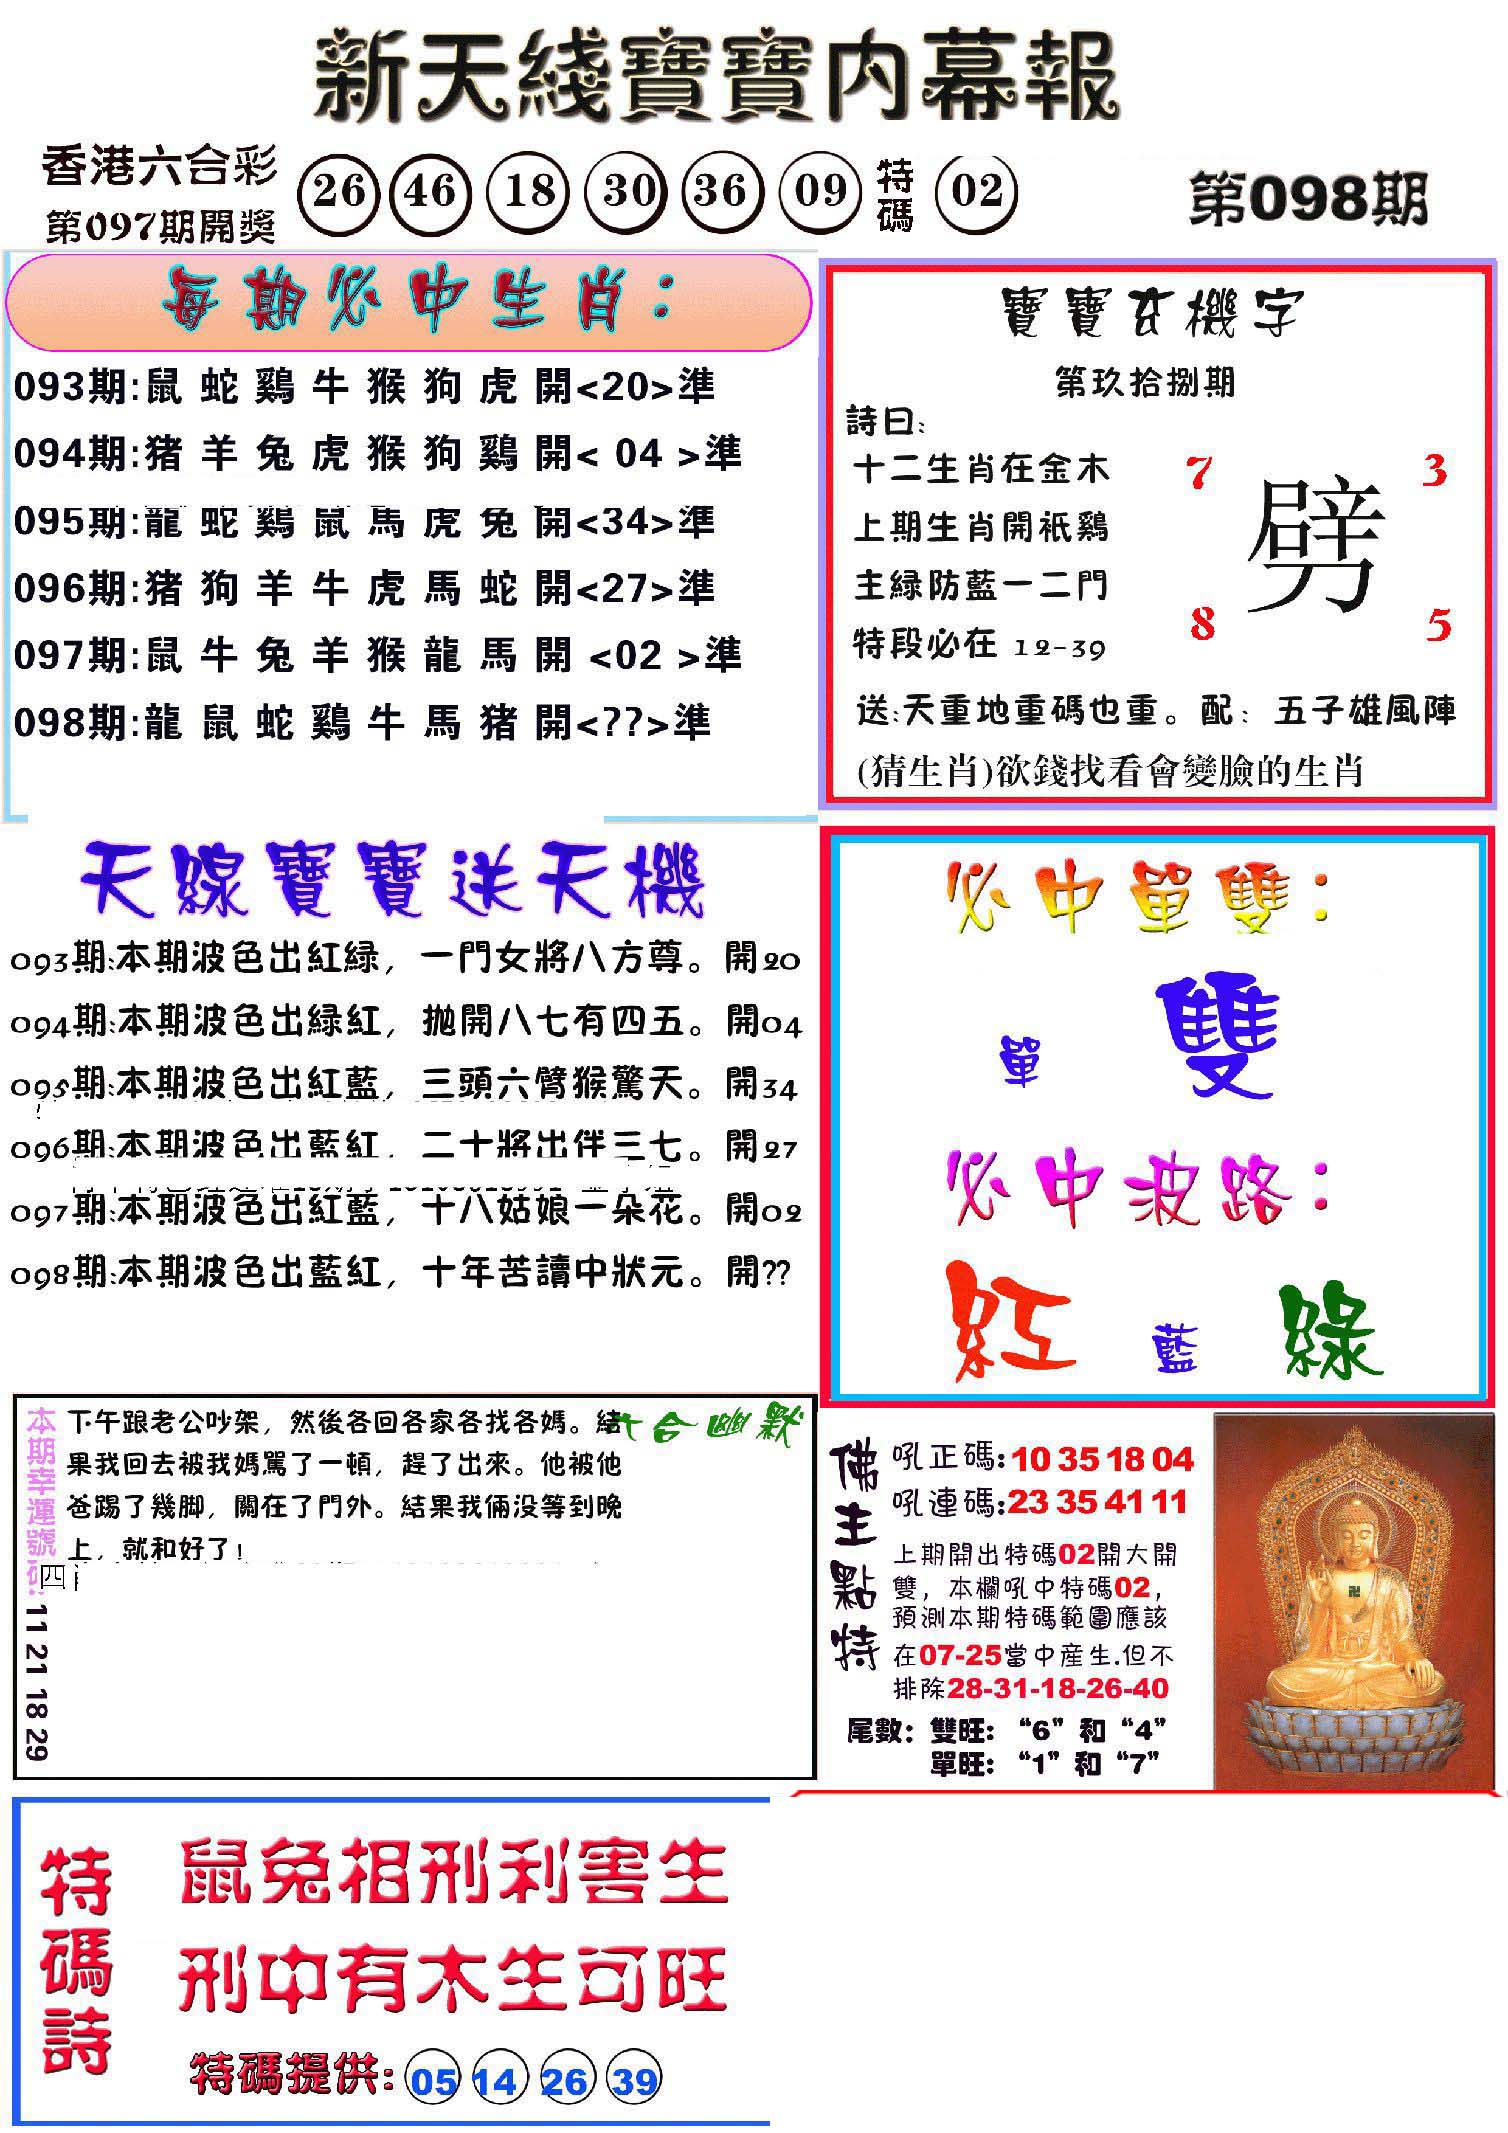 新天綫寶寶内幕報
香港六合彩
第097期開獎
26 46 18 30 36 09 特碼 02
第098期
每期必中生肖:
093期:鼠 蛇 鷄 牛 猴 狗 虎 開<20>準
094期:猪 羊 兔 虎 猴 狗 鷄 開< 04 >準
095期:龍 蛇 鷄 鼠 馬 虎 兔 開<34>準
096期:猪 狗 羊 牛 虎 馬 蛇 開<27>準
097期:鼠 牛 兔 羊 猴 龍 馬 開 <02 >準
098期:龍 鼠 蛇 鷄 牛 馬 猪 開<??>準
寶寶玄機字
第玖拾捌期
詩曰:
十二生肖在金木
上期生肖開衹鷄
主緑防藍一二門
特段必在 12-39
7 3
劈
8 5
送:天重地重碼也重。配: 五子雄風陣
(猜生肖)欲錢找看會變臉的生肖
天線寶寶送天機
093期:本期波色出紅緑, 一門女將八方尊。開20
094期:本期波色出緑紅, 抛開八七有四五。開04
095期:本期波色出紅藍, 三頭六臂猴驚天。開34
096期:本期波色出藍紅, 二十將出伴三七。開27
097期:本期波色出紅藍, 十八姑娘一朵花。開02
098期:本期波色出藍紅, 十年苦讀中狀元。開??
必中單雙:
單 雙
必中波路:
紅 藍 綠
六合幽默
下午跟老公吵架, 然後各回各家各找各媽。結
果我回去被我媽駡了一頓, 趕了出來。他被他
爸踢了幾脚, 關在了門外。結果我倆没等到晚
上, 就和好了!
四
本期幸運號碼: 11 21 18 29
佛主點特
吼正碼:10 35 18 04
吼連碼:23 35 41 11
上期開出特碼02開大開
雙, 本欄吼中特碼02,
預測本期特碼範圍應該
在07-25當中産生.但不
排除28-31-18-26-40
尾數: 雙旺: “6”和“4”
單旺: “1”和“7”
特碼詩
鼠兔相刑利害生
刑中有木生可旺
特碼提供: 05 14 26 39